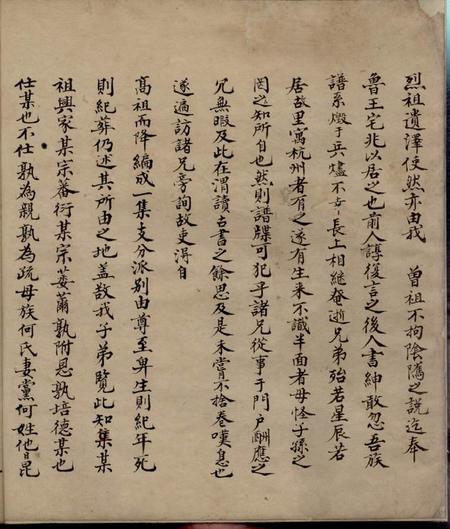 烈祖遺澤使然亦由我 曾祖不拘陰隲之說迄奉
魯王宅兆以居之也前人諄復言之後人書紳敢忽吾族
譜系燬于兵燼不幸長上相継奄逝兄弟殆若星辰若
居故里寓杭州者有之遂有生来不識半面者毋怪子孫之
罔之知所自也然則譜牒可犯乎諸兄從事于門户酬應之
冗無暇及此在渭讀古書之餘思及是未嘗不捨卷嘆息也
遂遍訪諸兄旁詢故吏淂自
高祖而降編成一集支分派别由尊至卑生則紀年死
則紀葬仍述其所由之地盖敎我子弟覽此知集某
祖興家某宗蕃衍某宗萎薾孰附恩孰培德某也
仕某也不仕孰為親孰為疏母族何氏妻黨何姓他日昆